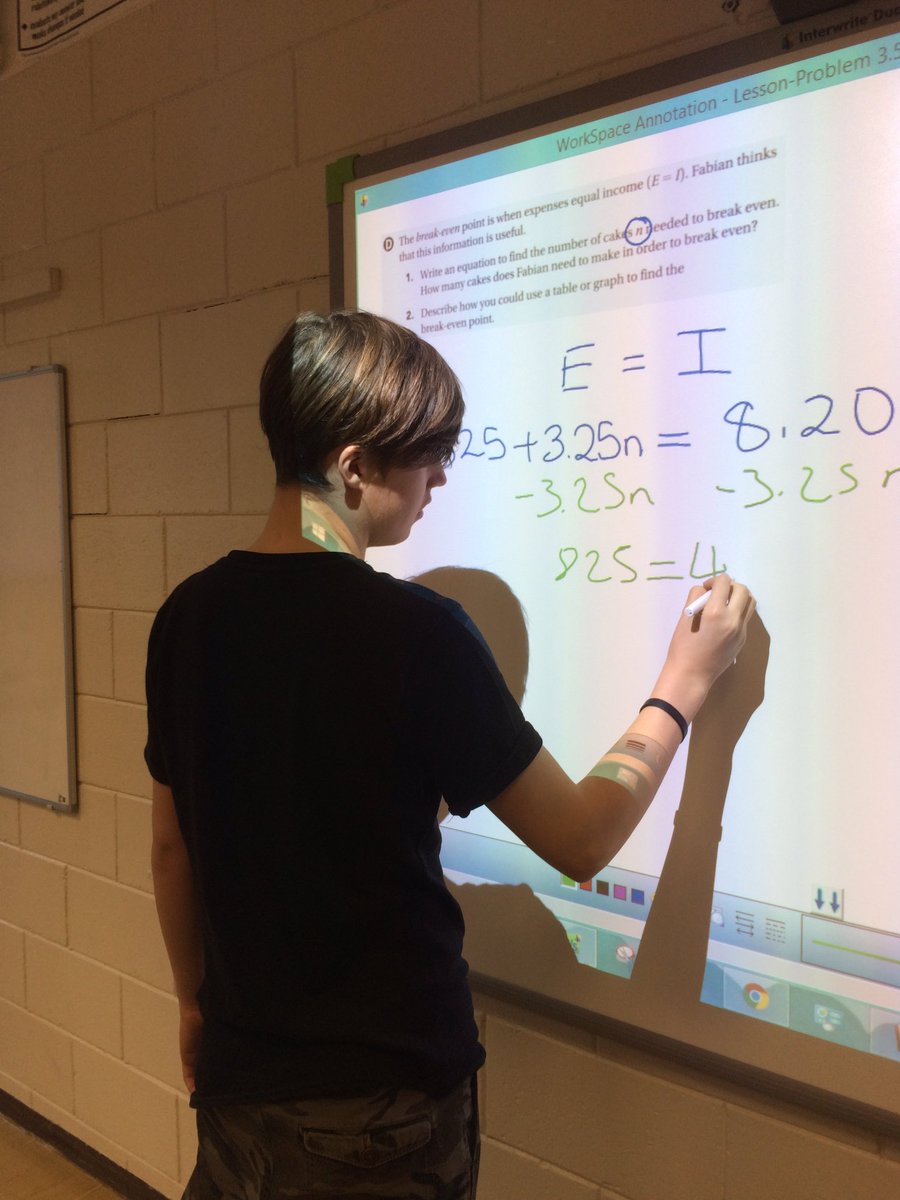 Interwrite
WorkSpace Annotation - Lesson-Problem 3.5
D The break-even point is when expenses equal income (E = I). Fabian thinks
that this information is useful.
1. Write an equation to find the number of cakes n needed to break even.
How many cakes does Fabian need to make in order to break even?
2. Describe how you could use a table or graph to find the
break-even point.
E = I
25+3.25n = 8.20
-3.25n -3.25n
825=4